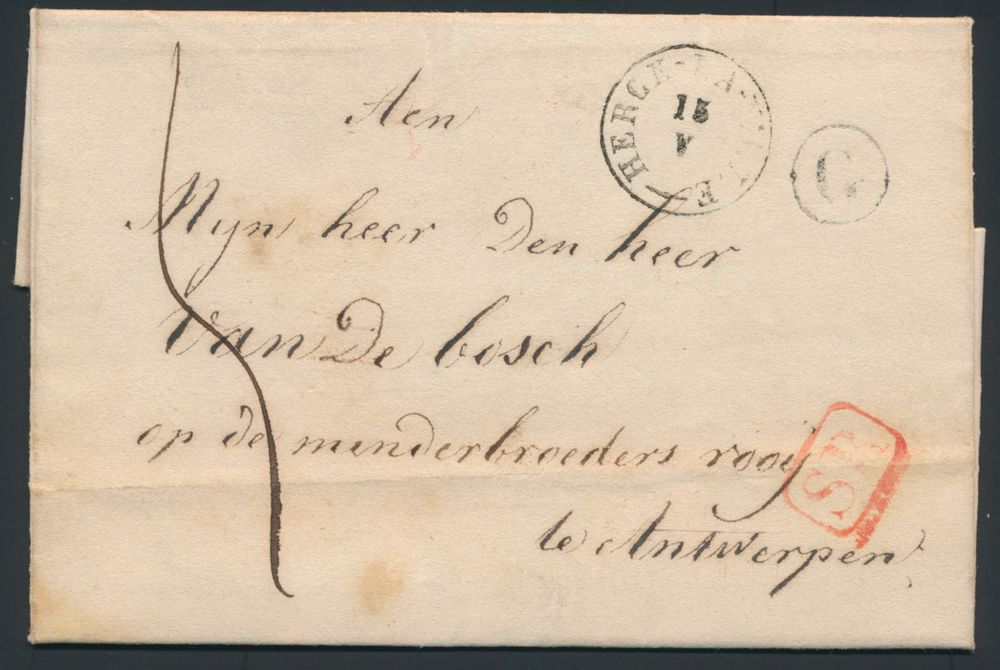 Aen
HERCK-LA-VILLE
15
V
G
Mijn heer Den heer
Van De bosch
op de minderbroeders rooij
SR
te Antwerpen